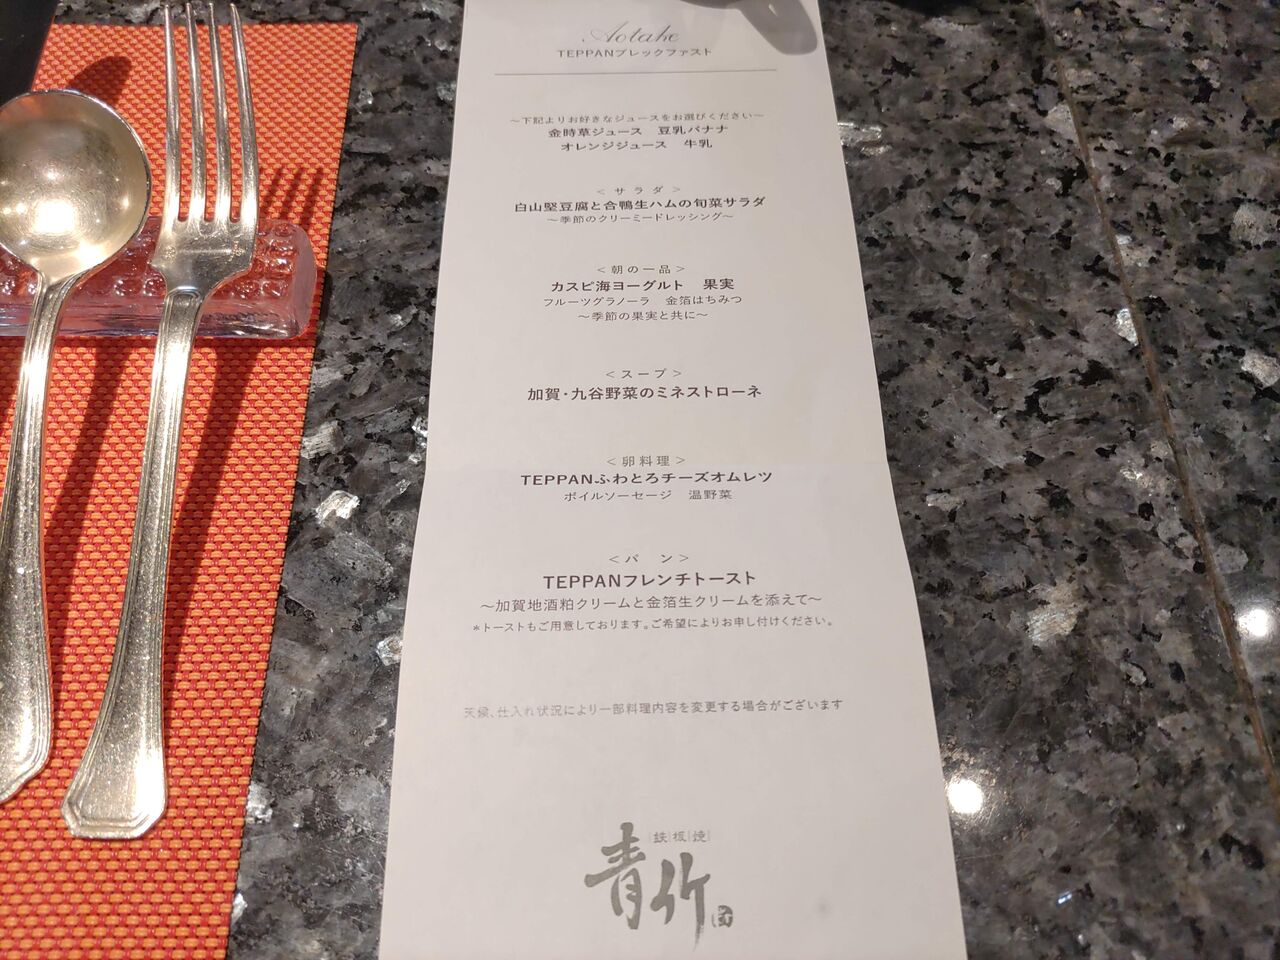 Aotake
TEPPANブレックファスト
～下記よりお好きなジュースをお選びください～
金時草ジュース　豆乳バナナ
オレンジジュース　牛乳
＜サラダ＞
白山堅豆腐と合鴨生ハムの旬菜サラダ
～季節のクリーミードレッシング～
＜朝の一品＞
カスピ海ヨーグルト　果実
フルーツグラノーラ　金箔はちみつ
～季節の果実と共に～
＜スープ＞
加賀・九谷野菜のミネストローネ
＜卵料理＞
TEPPANふわとろチーズオムレツ
ボイルソーセージ　温野菜
＜パン＞
TEPPANフレンチトースト
～加賀地酒粕クリームと金箔生クリームを添えて～
＊トーストもご用意しております。ご希望によりお申し付けください。
天候、仕入れ状況により一部料理内容を変更する場合がございます
鉄板焼
青竹